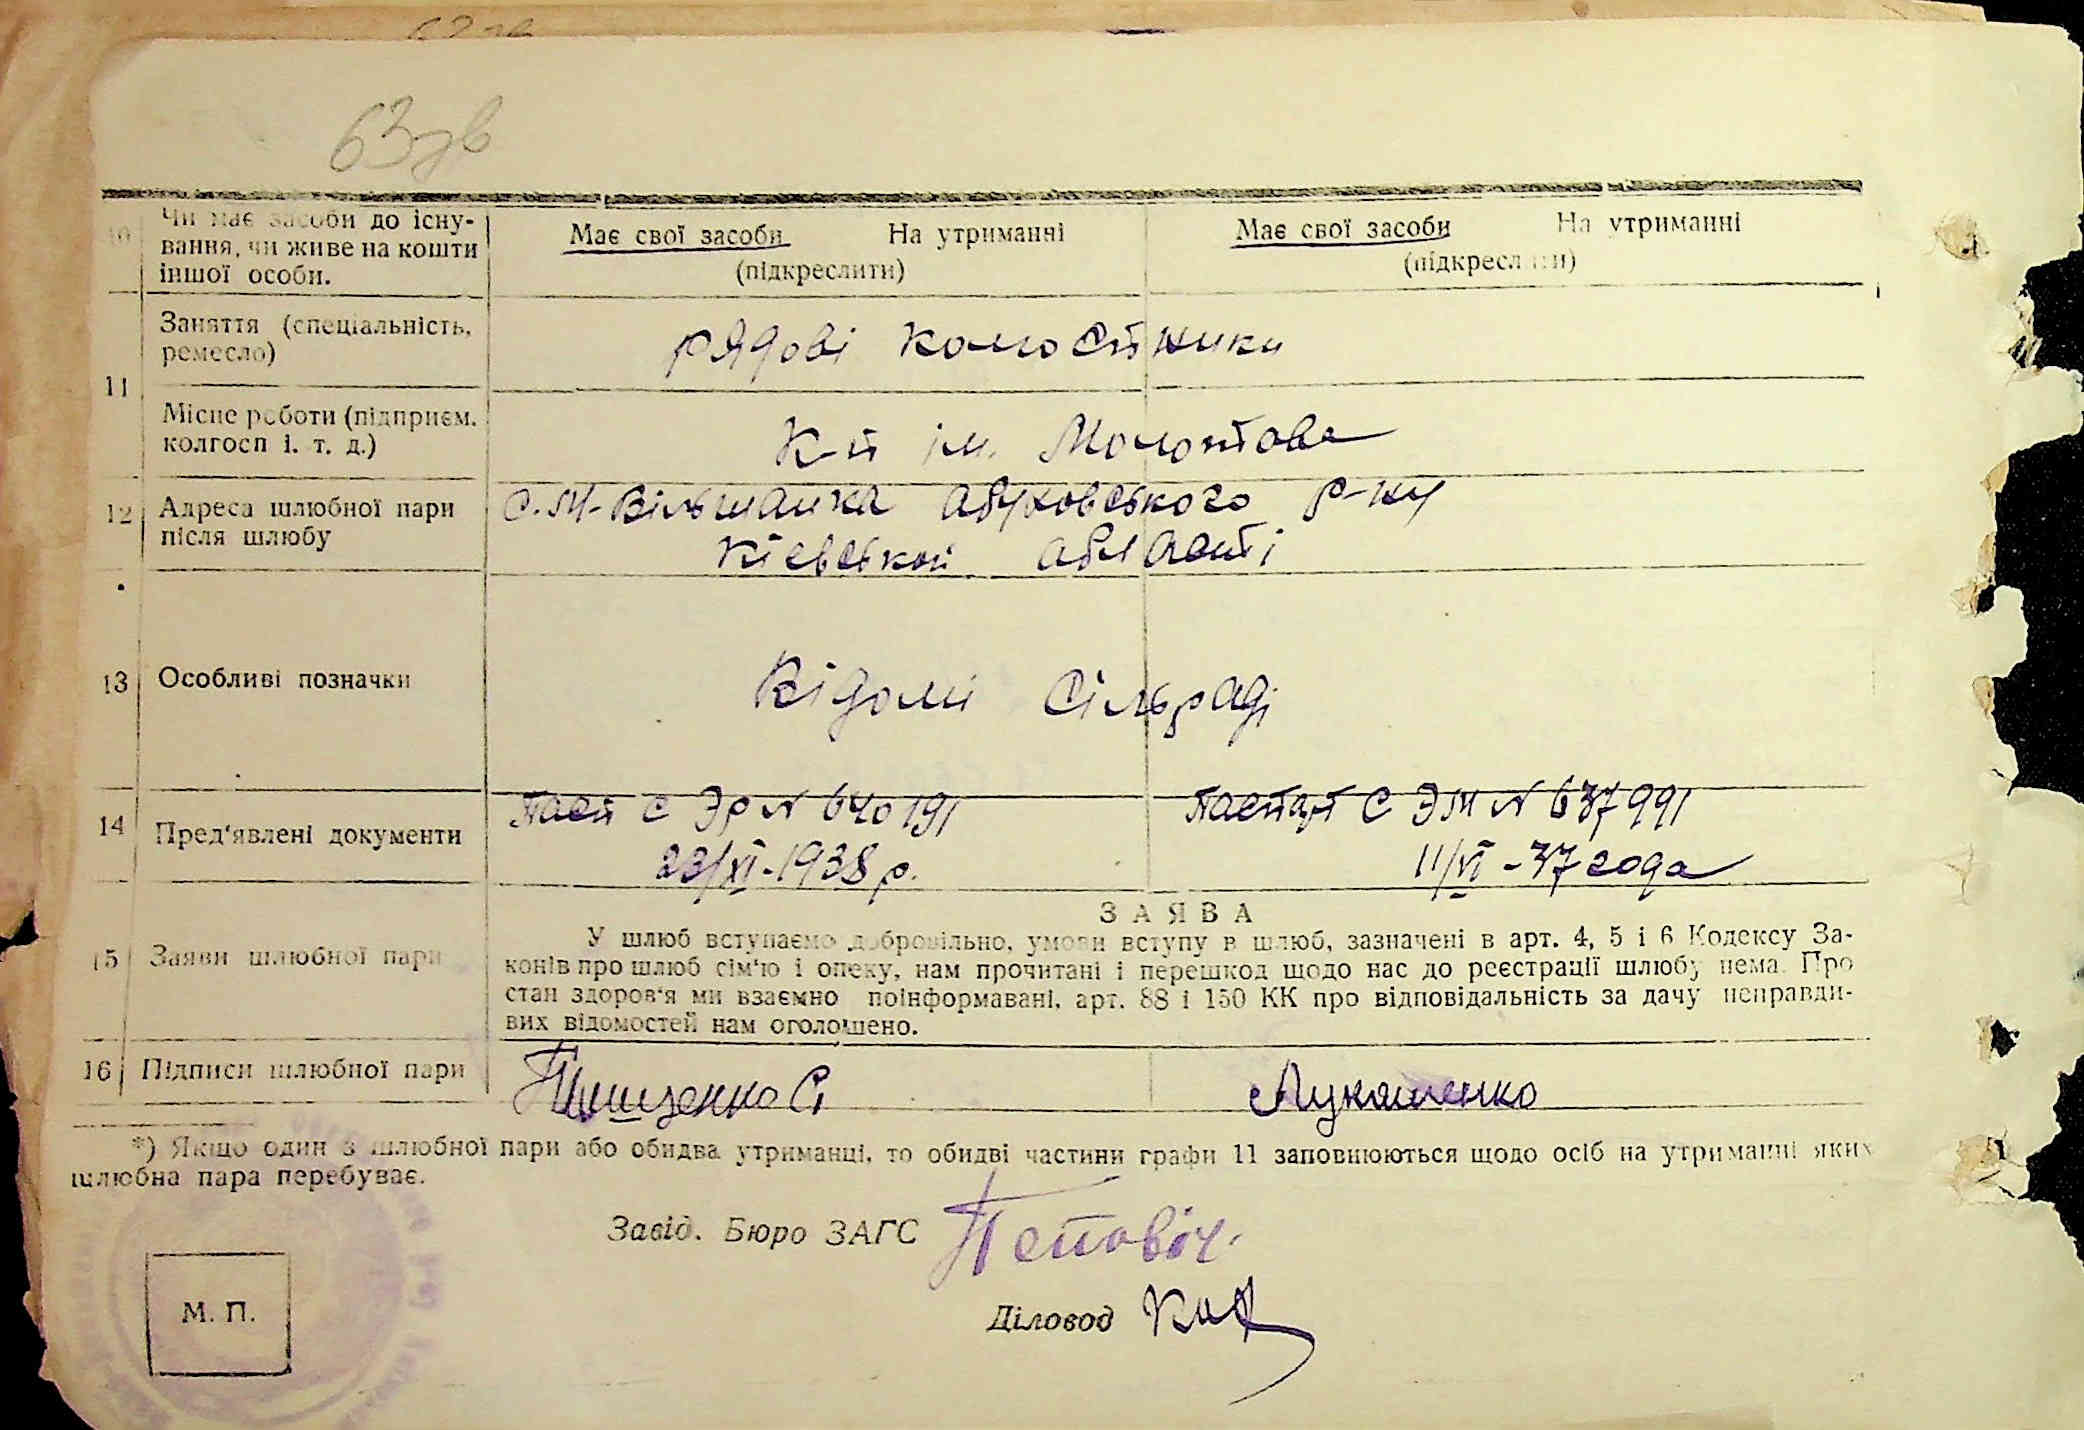 63зв
10 Чи має засоби до існу-
вання, чи живе на кошти
іншої особи.
Має свої засоби На утриманні
(підкреслити)
Має свої засоби На утриманні
(підкреслити)
11
Заняття (спеціальність,
ремесло)
рядові
Місце роботи (підприєм.
колгосп і. т. д.)
К-п ім. Молотова
12 Адреса шлюбної пари
після шлюбу
С. М-Вільшанка абуховського р-ну
Кіевськой абласті
13 Особливі позначки
Відомі Сільраді
14 Пред'явлені документи
Пасп С ЭР N 640191
23/XI-1938 р.
Паспорт С ЭМ N 637991
11/VI-37 года
15 Заяви шлюбної пари
ЗАЯВА
У шлюб вступаємо добровільно, умови вступу в шлюб, зазначені в арт. 4, 5 і 6 Кодексу За-
конів про шлюб сім'ю і опеку, нам прочитані і перешкод щодо нас до реєстрації шлюбу нема. Про
стан здоров'я ми взаємно поінформавані, арт. 88 і 150 КК про відповідальність за дачу неправди-
вих відомостей нам оголошено.
16 Підписи шлюбної пари
Тищенко С
Лукашенко
*) Якщо один з шлюбної пари або обидва утриманці, то обидві частини графи 11 заповнюються щодо осіб на утриманні яких
шлюбна пара перебуває.
Завід. Бюро ЗАГС
Діловод
М. П.